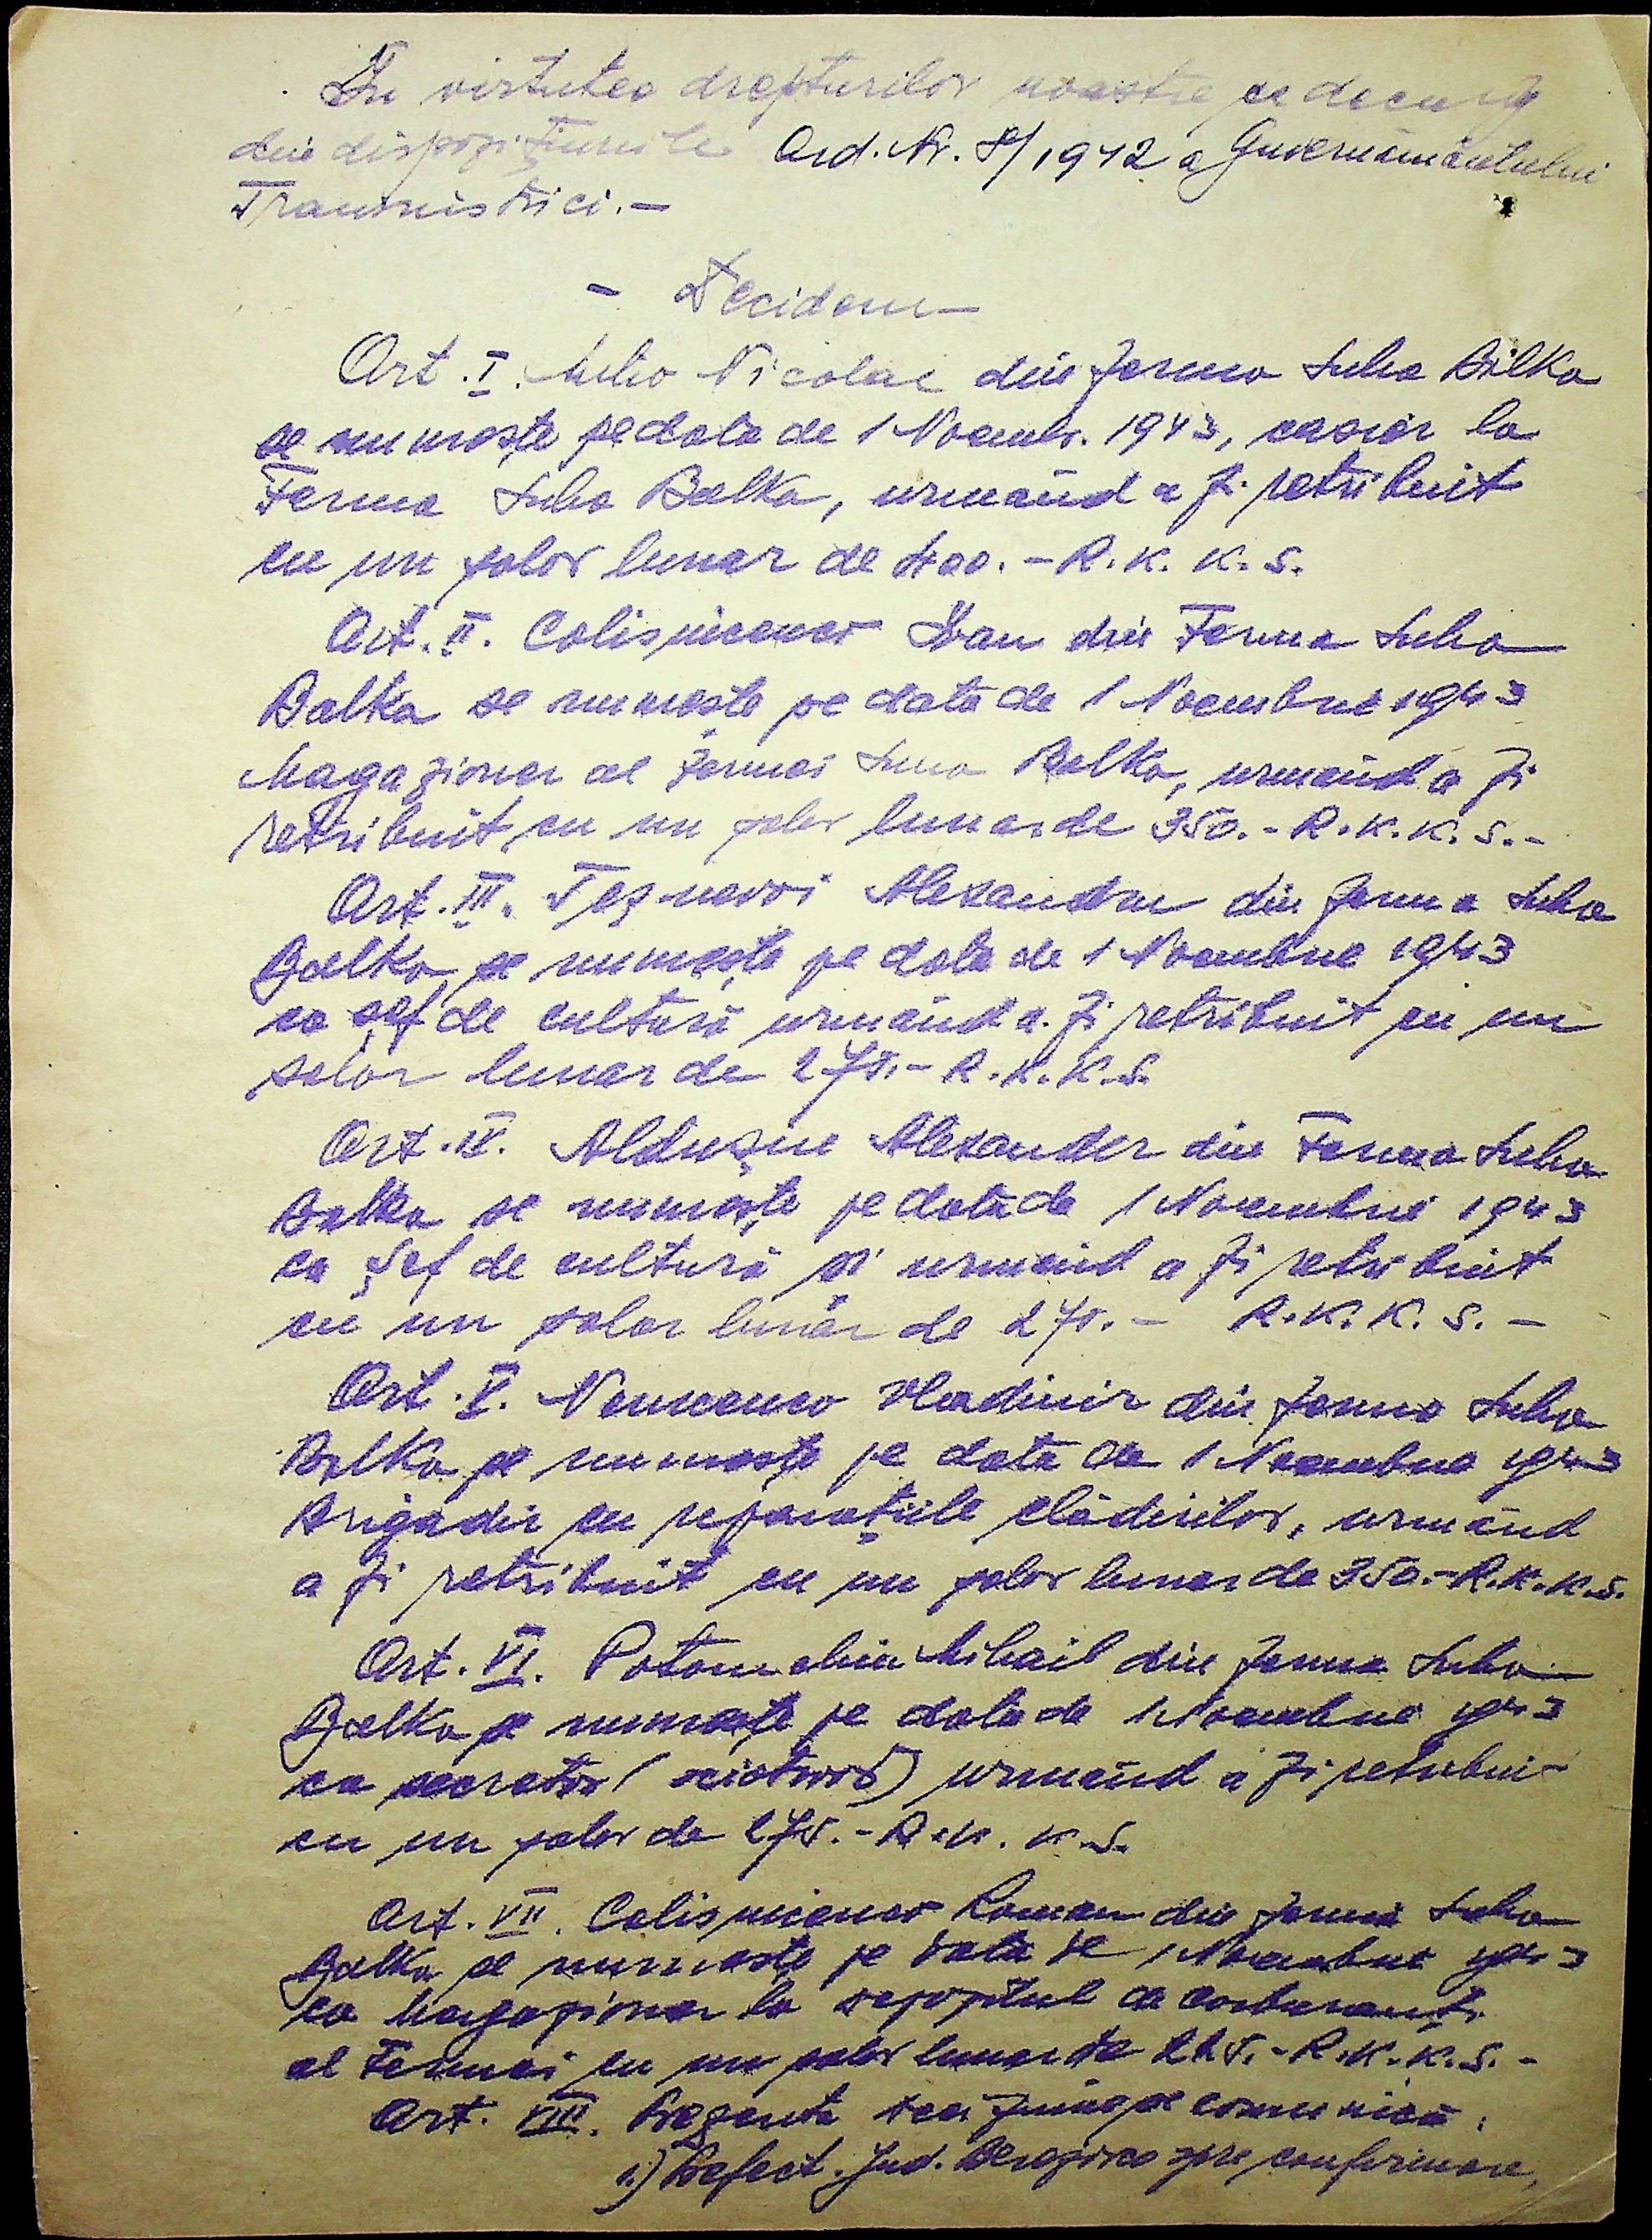 În virtutea drepturilor noastre ce decurg
din dispozițiunile Ord. Nr. 8/1942 a Guvernământului
Transnistriei.—
- Decidem—
Art. I. Nicolae din ferma Suha Balka
se numește pe data de 1 Noembr. 1943, casier la
Ferma Suha Balka, urmând a fi retribuit
cu un salor lunar de 400.- R.K.K.S.
Art. II. Colisnicenco Ivan din Ferma Suha
Balka se numește pe data de 1 Noembrie 1943
Magazioner al fermei Suha Balka, urmând a fi
retribuit cu un salor lunar de 350.- R.K.K.S.-
Art. III. Alexandru din ferma Suha
Balka se numește pe data de 1 Noembrie 1943
ca șef de cultură urmând a fi retribuit cu un
salor lunar de 275.- R.K.K.S.
Art. IV. Alexander din Ferma Suha
Balka se numește pe data de 1 Noembrie 1943
ca șef de cultură și urmând a fi retribuit
cu un salor lunar de 275.- R.K.K.S.-
Art. V. Vladimir din ferma Suha
Balka se numește pe data de 1 Noembrie 1943
Brigadir cu reparațiile clădirilor, urmând
a fi retribuit cu un salor lunar de 350.- R.K.K.S.
Art. VI. Mihail din ferma Suha
Balka se numește pe data de 1 Noembrie 1943
ca secretar urmând a fi retribui-
cu un salor de 275.- R.K.K.S.
Art. VII. Colisnicenco Roman din ferma Suha
Balka se numește pe data de 1 Noembrie 1943
ca Magazioner la depozitul de carburanți
al Fermei cu un salor lunar de 225.- R.K.K.S.-
Art. VIII. Prezenta deciziune se comunică:
1.) Prefect. Jud. Berezovca spre confirmare,